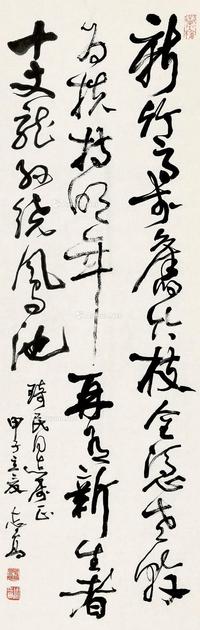 新竹高於舊竹枝全憑老幹
为扶持明年再有新生者
十丈龍孫繞鳳池
琦民同志屬正
甲子